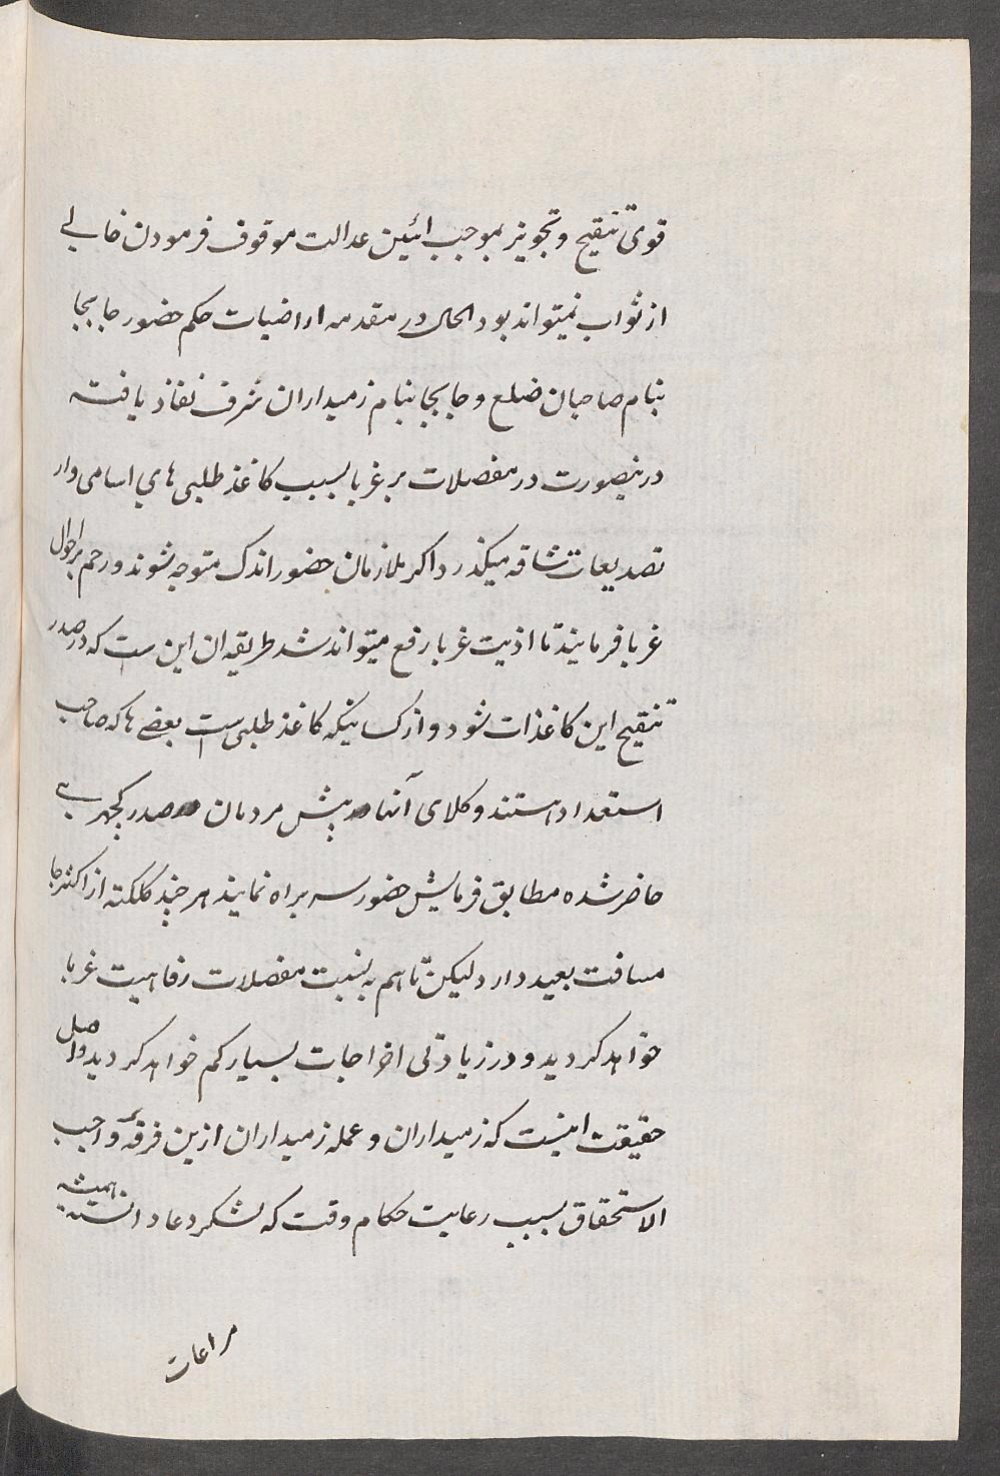 قوی تنقیح و تجویز بموجب ائین عدالت موقوف فرمودن خالے
از ثواب نمیتواند بود الحال در مقدمه اراضیات حکم حضور جابجا
بنام صاحبان ضلع و جابجا بنام زمیداران شرف نفاذ یافته
درینصورت در مفصلات بر غربا بسبب کاغذ طلبی های اسامی وار
تصدیعات شاقه میگذرد اکر ملازمان حضور اندک متوجه شوند و رحم بر احوال
غربا فرمایند تا اذیت غربا رفع میتواند شد طریقه ان این ست که در صدر
تنقیح این کاغذات شود و از کسانیکه کاغذ طلبی ست بعضے ها که صاحب
استعداد هستند وکلای آنها پیش مردمان صدر کچهرے
حاضر شده مطابق فرمایش حضور سربراه نمایند هر چند کلکته از اکثر جا
مسافت بعید دارد لیکن تا هم به نسبت مفصلات رفاهیت غربا
خواهد کردید و در زیادتی اخراجات بسیار کم خواهد کردید و اصل
حقیقت اینست که زمیداران و عمله زمیداران ازین فرقه واجب
الاستحقاق بسبب رعایت حکام وقت که لشکر دعا دانسته همیشه
مراعات